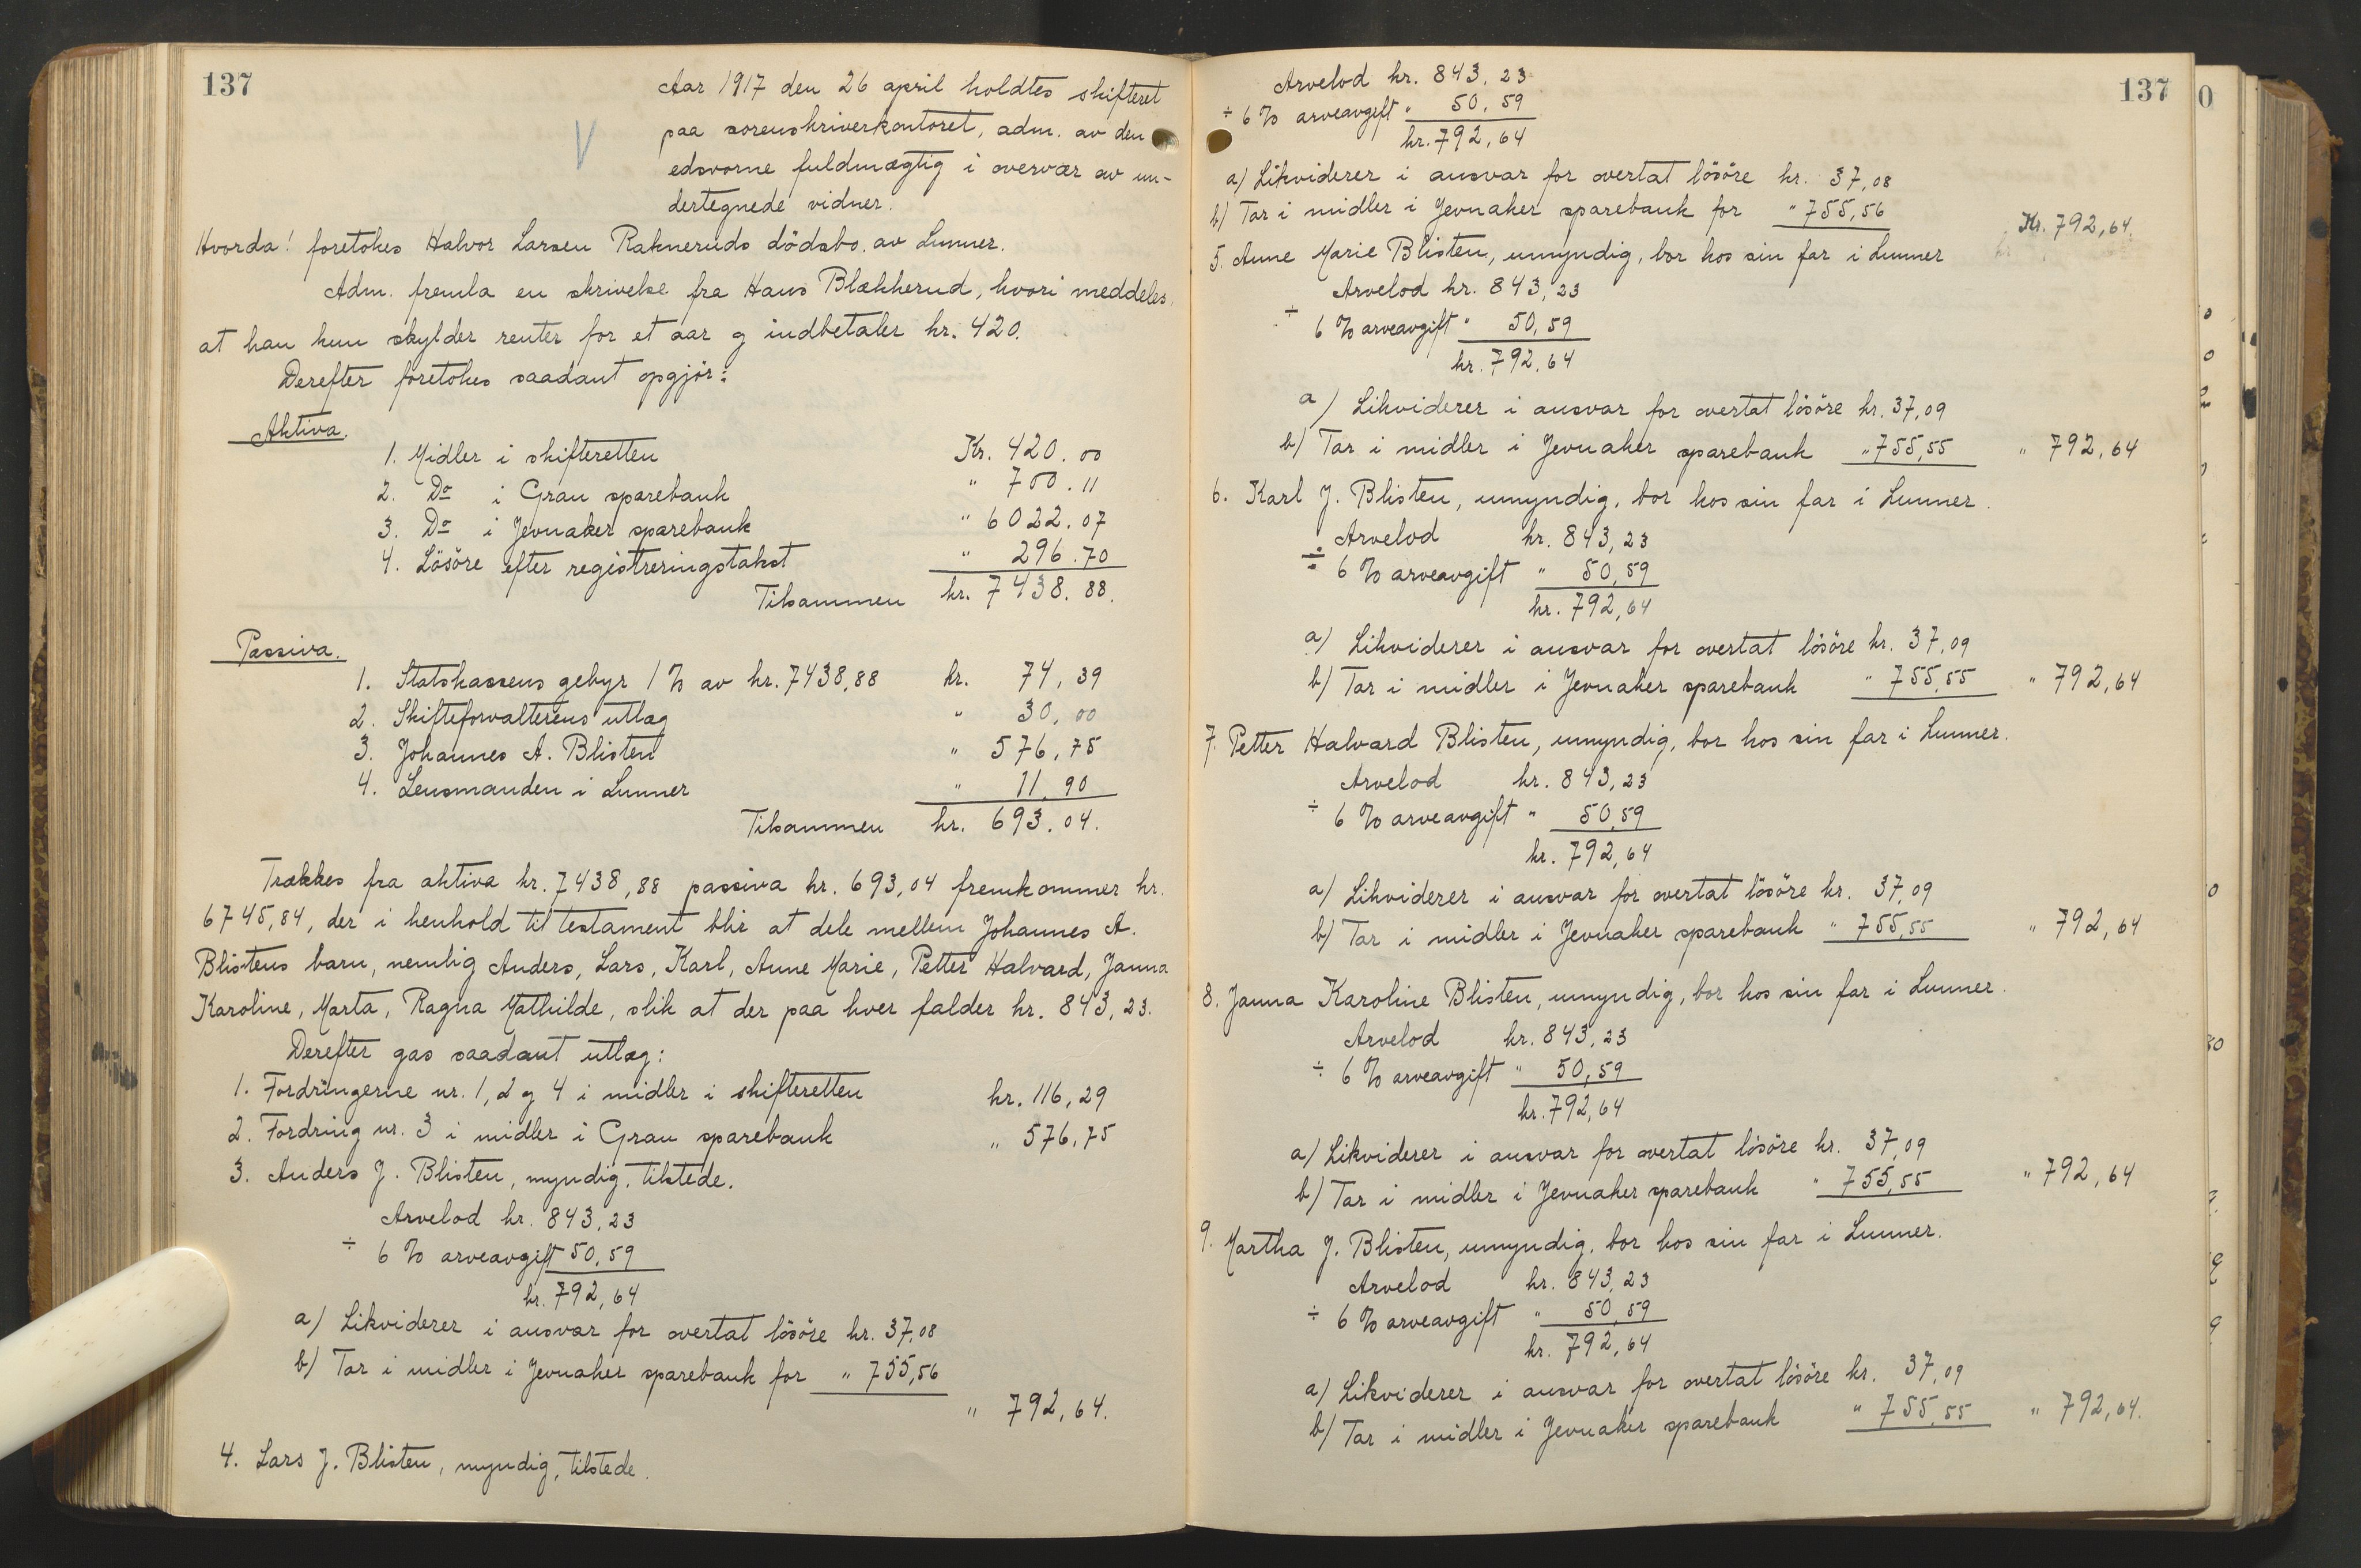 137
Aar 1917 den 26 april holdtes skifteret
paa sorenskriverkontoret, adm. av den
edsvorne fuldmægtig i overvær av un-
dertegnede vidner.
Hvorda! foretokes Halvor Larsen Rakneruds dödsbo av Lunner.
Adm. fremla en skrivelse fra Hans Blækkerud, hvori meddeles,
at han kun skylder renter for et aar og indbetaler kr. 420.
Derefter foretokes saadant opgjör:
Aktiva.
1. Midler i skifteretten Kr. 420.00
2. Do i Gran sparebank " 700.11
3. Do i Jevnaker sparebank " 6022.07
4. Lösöre efter registreringstakst " 296.70
Tilsammen kr. 7438.88.
Passiva.
1. Statskassens gebyr 1 % av kr. 7438,88 kr. 74,39
2. Skifteforvalterens utlæg " 30,00
3. Johannes A. Blisten " 576,75
4. Lensmanden i Lunner " 11.90
Tilsammen kr. 693.04.
Trækkes fra aktiva kr. 7438,88 passiva kr. 693,04 fremkommer kr.
6745,84, der i henhold til testament blir at dele mellem Johannes A.
Blistens barn, nemlig Anders, Lars, Karl, Anne Marie, Petter Halvard, Janna
Karoline, Marta, Ragna Mathilde, slik at der paa hver falder kr. 843,23.
Derefter gas saadant utlæg:
1. Fordringerne nr. 1, 2 og 4 i midler i skifteretten kr. 116,29
2. Fordring nr. 3 i midler i Gran sparebank " 576,75
3. Anders J. Blisten, myndig, tilstede.
Arvelod kr. 843,23
÷ 6 % arveavgift 50,59
kr. 792,64
a) Likviderer i ansvar for overtat lösöre kr. 37,08
b) Tar i midler i Jevnaker sparebank for " 755,56
" 792,64.
4. Lars J. Blisten, myndig, tilstede.
137
Arvelod kr. 843,23
÷ 6 % arveavgift " 50.59
kr. 792,64
a) Likviderer i ansvar for overtat lösöre kr. 37,08
b) Tar i midler i Jevnaker sparebank for " 755,56
Kr. 792,64.
5. Anne Marie Blisten, umyndig, bor hos sin far i Lunner
Arvelod kr. 843,23
÷ 6 % arveavgift " 50,59
kr. 792,64
a) Likviderer i ansvar for overtat lösöre kr. 37,09
b) Tar i midler i Jevnaker sparebank " 755,55 " 792,64
6. Karl J. Blisten, umyndig, bor hos sin far i Lunner.
Arvelod kr. 843,23
÷ 6 % arveavgift " 50,59
kr. 792,64
a) Likviderer i ansvar for overtat lösöre kr. 37,09
b) Tar i midler i Jevnaker sparebank " 755,55 " 792,64
7. Petter Halvard Blisten, umyndig, bor hos sin far i Lunner.
Arvelod kr. 843,23
÷ 6 % arveavgift " 50,59
kr. 792,64
a) Likviderer i ansvar for overtat lösöre kr. 37,09
b) Tar i midler i Jevnaker sparebank " 755,55 " 792,64
8. Janna Karoline Blisten, umyndig, bor hos sin far i Lunner.
Arvelod kr. 843,23
÷ 6 % arveavgift " 50,59
kr. 792,64
a) Likviderer i ansvar for overtat lösöre kr. 37,09
b) Tar i midler i Jevnaker sparebank " 755,55 " 792,64
9. Martha J. Blisten, umyndig, bor hos sin far i Lunner.
Arvelod kr. 843,23
÷ 6 % arveavgift " 50,59
kr. 792,64
a) Likviderer i ansvar for overtat lösöre kr. 37,09
b) Tar i midler i Jevnaker sparebank " 755,55 " 792,64.